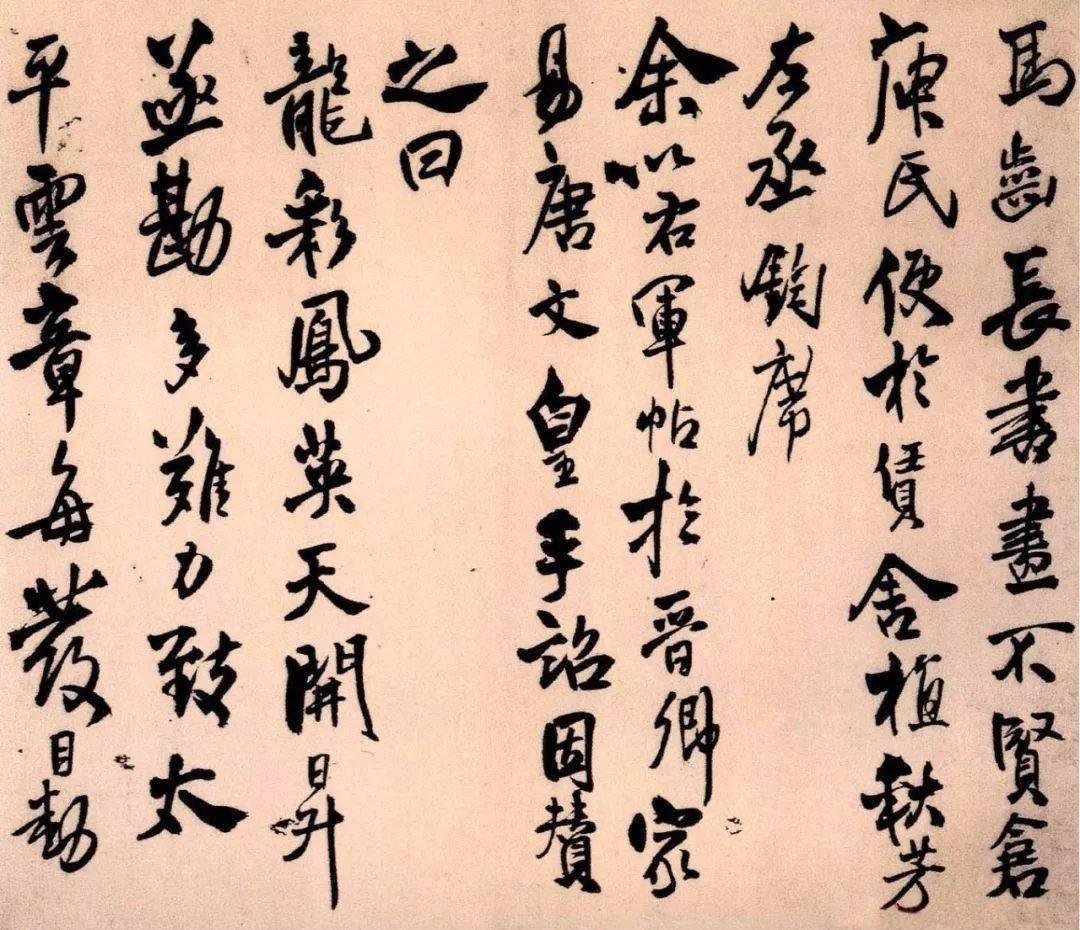 馬齒長書畫不賢倉
庾氏便於賃舍植芳
左丞鈞席
余以右軍帖於晉卿家
易唐文皇手詔因贊
之曰
龍彩鳳英天開日昇
亟勘多難力致太
平雲章每發目動